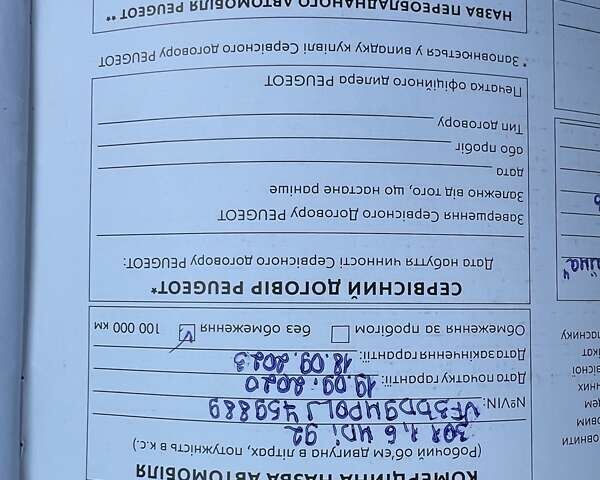 КОМЕРЦІЙНА НАЗВА АВТОМОБІЛЯ
(Робочий об'єм двигуна в літрах, потужність в к.с.)
301 1,6 HDi 92
N°VIN: VF3DD9HP0LJ459889
Дата початку гарантії: 19.09.2020
Дата закінчення гарантії: 18.09.2023
Обмеження за пробігом без обмеження V 100 000 км
СЕРВІСНИЙ ДОГОВІР PEUGEOT*
Дата набуття чинності Сервісного договору PEUGEOT:
Завершення Сервісного Договору PEUGEOT
Залежно від того, що настане раніше
дата
або пробіг
Тип договору
Печатка офіційного дилера PEUGEOT
* Заповнюється у випадку купівлі Сервісного договору PEUGEOT
НАЗВА ПЕРЕОБЛАДНАНОГО АВТОМОБІЛЯ PEUGEOT **